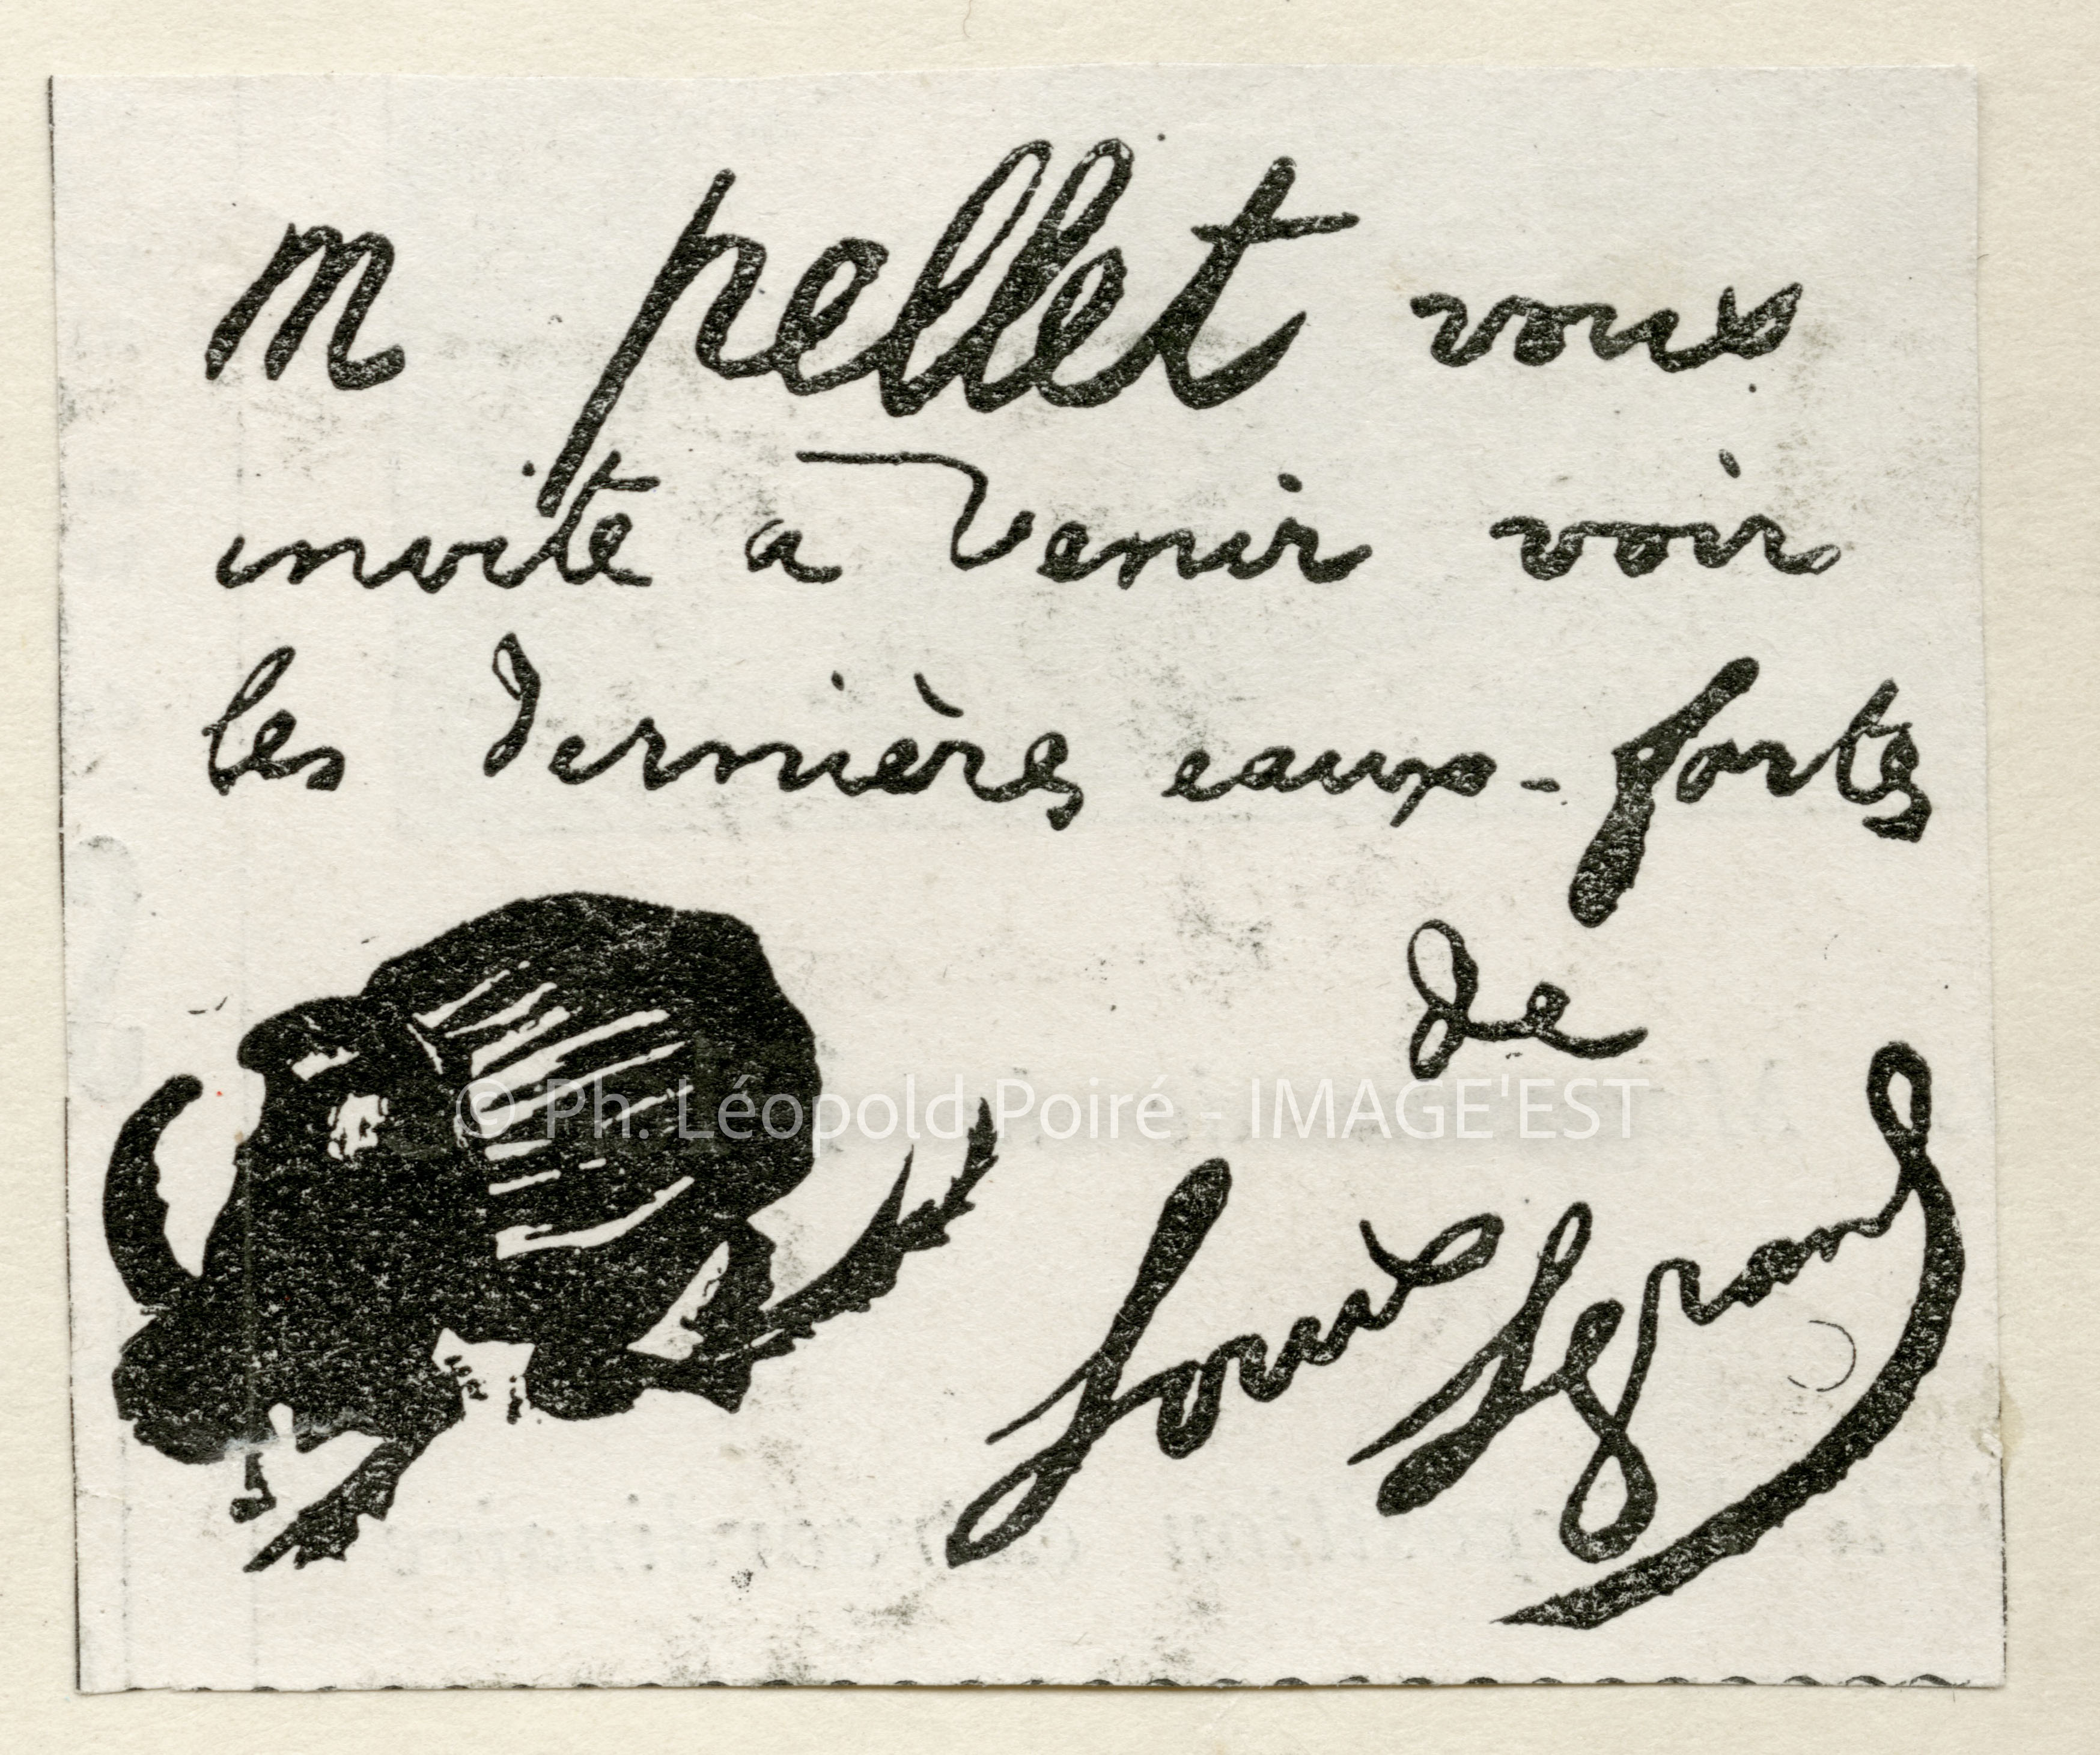 m pellet vous
invite a venir voir
les dernières eaux-fortes
de
Louis Legrand
© Ph. Léopold Poiré - IMAGE'EST